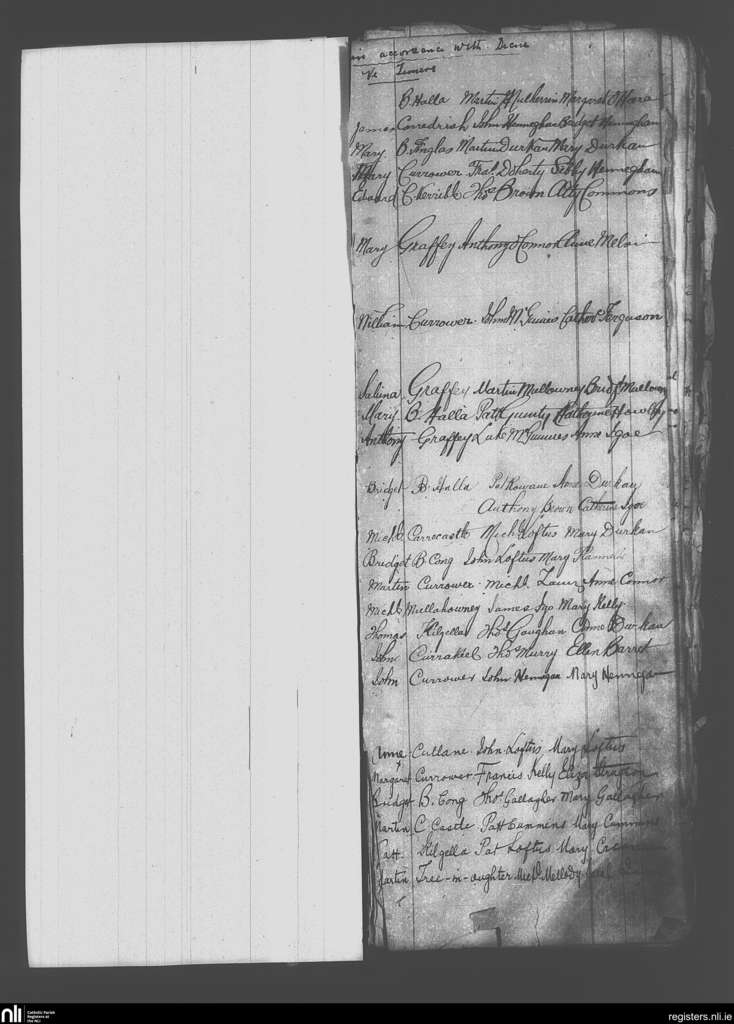 in accordance with Decree
Ne Temere
B. Halla Martin Mulherrin Margaret O'Hara
James Carredrish John Henneghan Bridget Henneghan
Mary B. Finglas Martin Durkan Mary Durkan
Mary Currower That. Doherty Sibby Henneghan
Edward C. Kerrible Thos Brown Atty Commons
Mary Graffey Anthony O'Connor Anne Melvin
William Currower John McGuines Cathe. Ferguson
Sabina Graffey Martin Mullowney Bridt Mullowny
Mary B. Halla Patk Gunty Katherine Howley
Anthony Graffey Luke McGuinnes Anne Igoe
Bridget B. Halla Pat Rowane Anne Durkan
Anthony Brown Catherine Igoe
Michl Carrocastle Michl Loftus Mary Durkan
Bridget B Cong John Loftus Mary
Martin Currower Michl Anne Connor
Michl Mullahowney James Igo Mary Kelly
Thomas Kilgellia Thos Gaughan Anne Durkan
John Currakiel Thos Murry Ellen Barret
John Currower John Hennegan Mary Hennegan
Anne Cullane John Loftus Mary Loftus
Margaret Currower Francis Kelly Eliza
Bridget B. Cong Thos Gallagher Mary Gallagher
Martin C Castle Patt Cummins Mary Cummins
Patt Kilgella Pat Loftus Mary
Martin Tree-m-oughter Michl Mellody
nli
Catholic Parish
Registers at
the NLI
registers.nli.ie